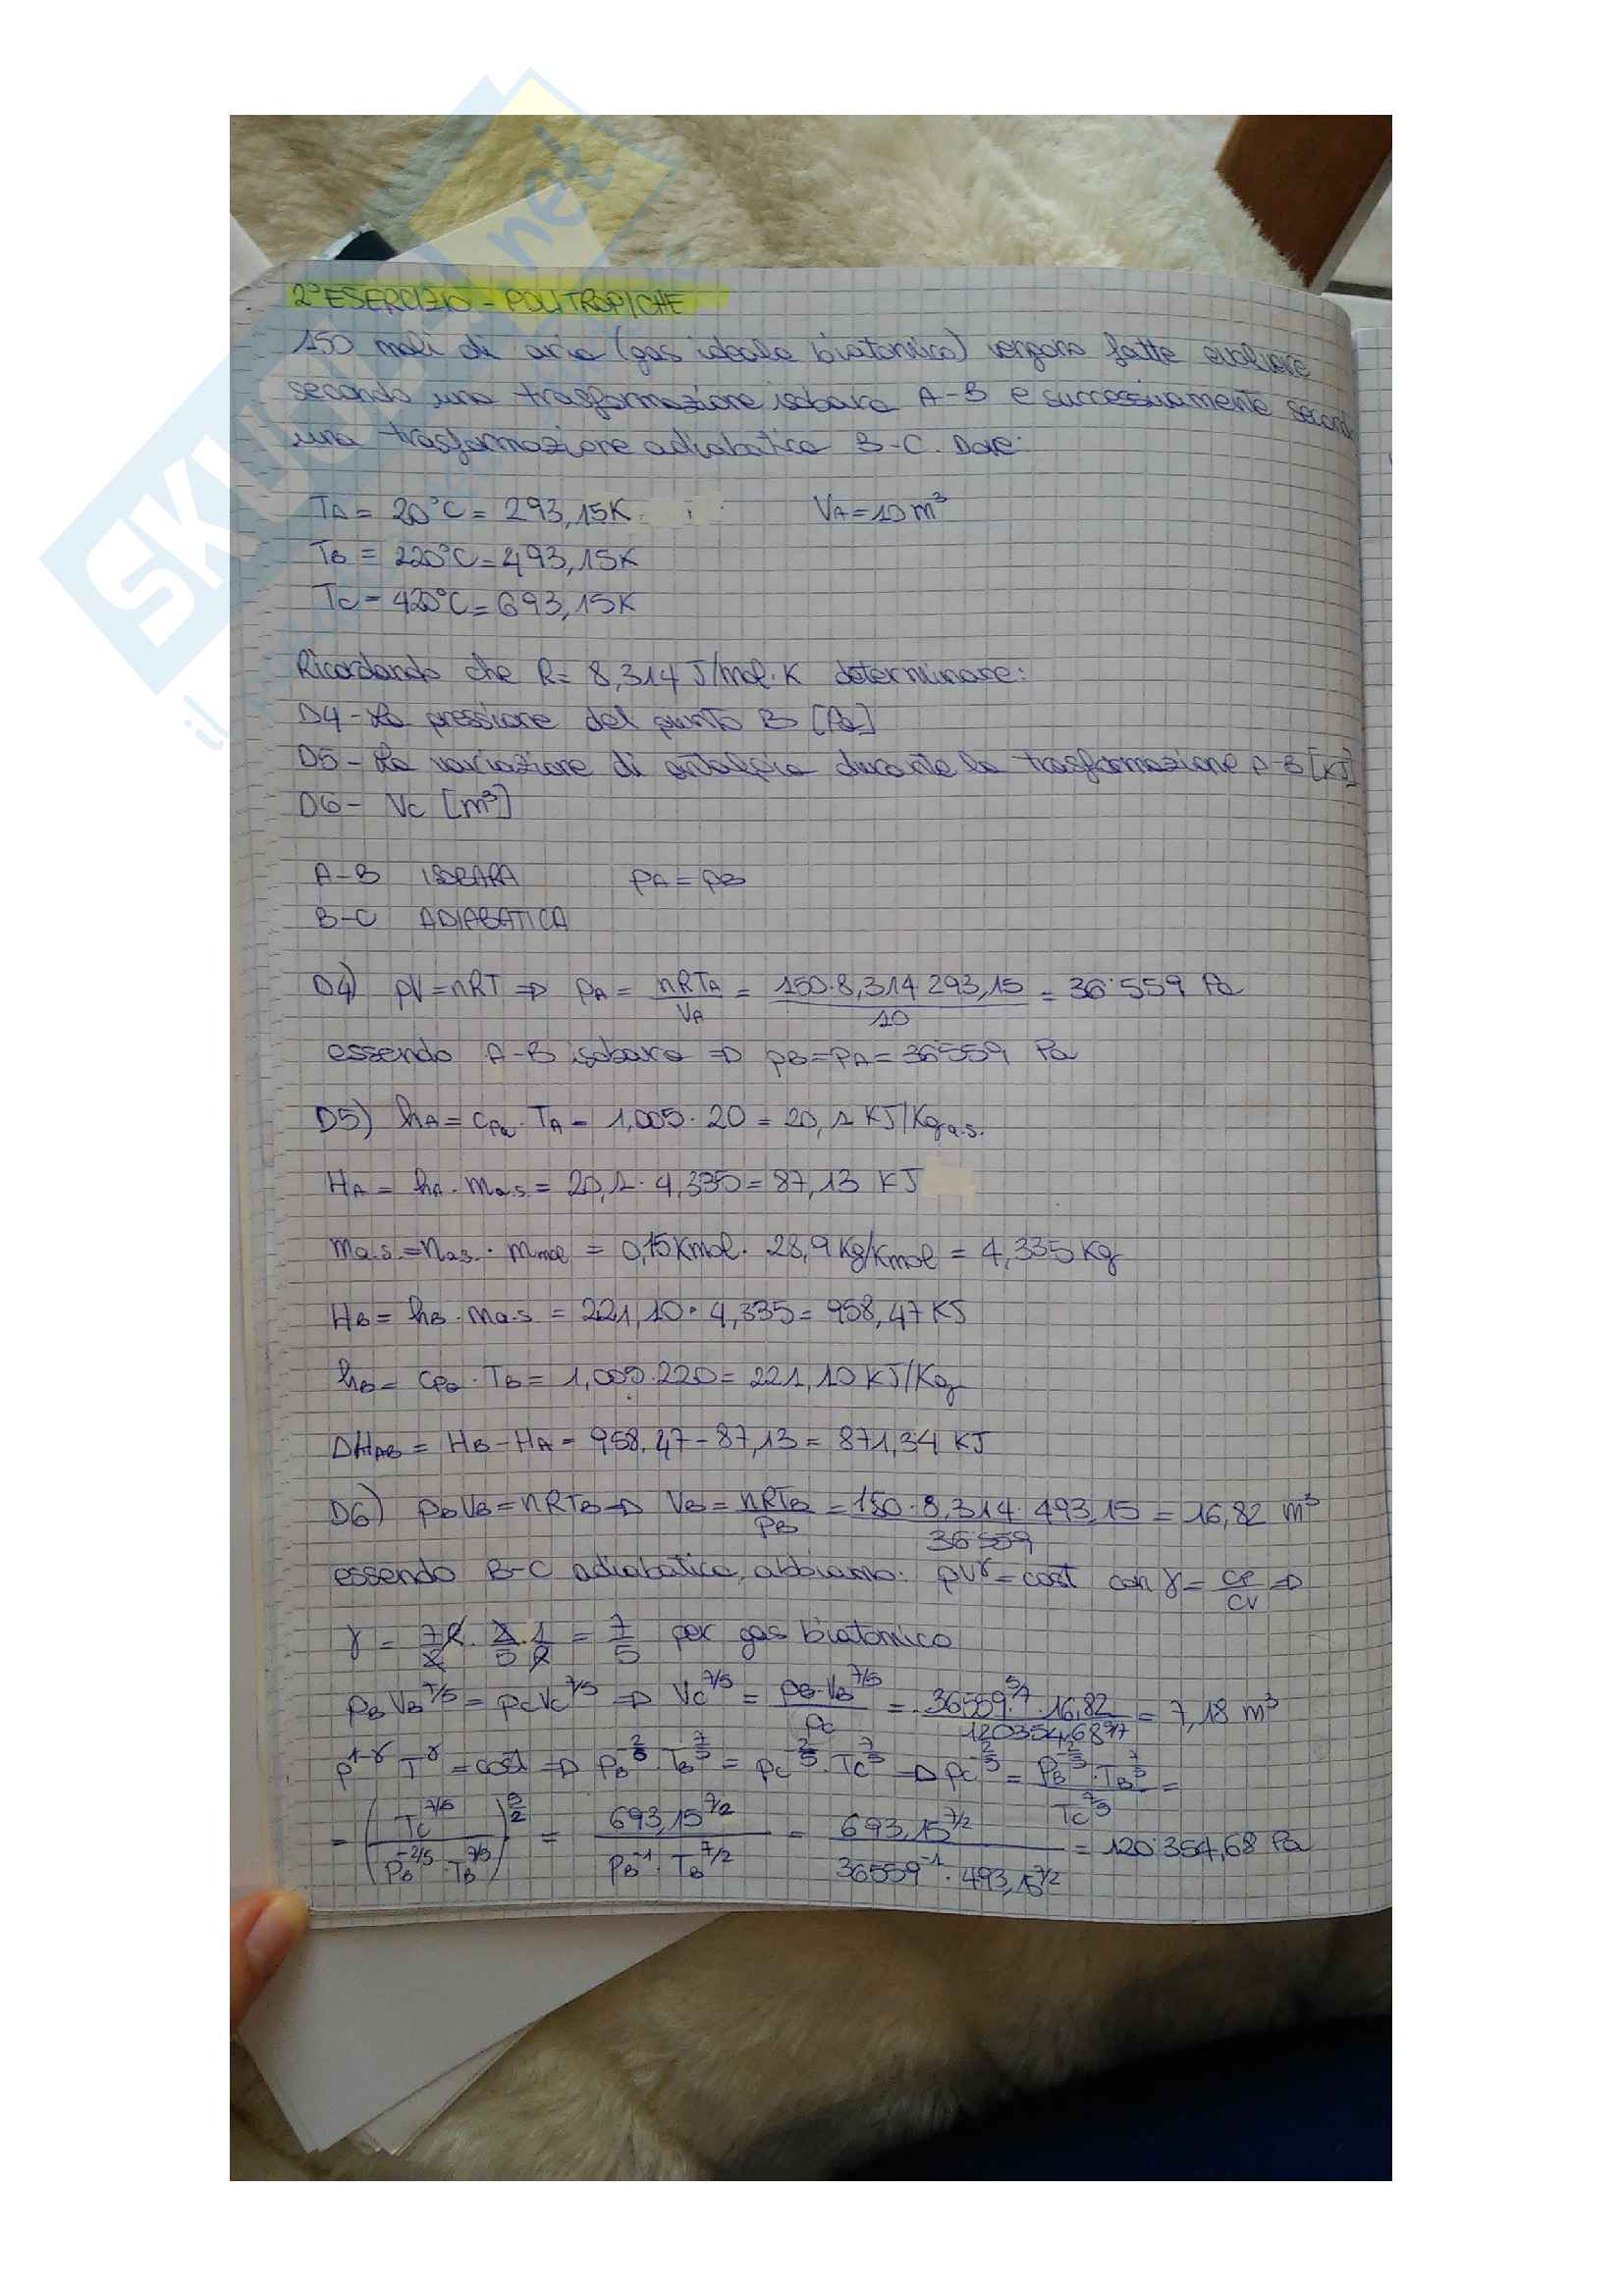 SKUOLA.net
2° ESERCIZIO - POLITROPICHE
150 moli di aria (gas ideale biatomico) vengono fatte evolvere
secondo una trasformazione isobara A-B e successivamente secondo
una trasformazione adiabatica B-C. Dare:
TA = 20°C = 293,15K VA = 10 m³
TB = 220°C = 493,15K
TC = 420°C = 693,15K
Ricordando che R = 8,314 J/mol·K determinare:
D4 - La pressione del punto B [Pa]
D5 - La variazione di entalpia durante la trasformazione A-B [KJ]
D6 - VC [m³]
A-B ISOBARA pA = pB
B-C ADIABATICA
D4) pV = nRT => pA = nRTA/VA = 150·8,314·293,15/10 = 36'559 Pa
essendo A-B isobara => pB = pA = 36'559 Pa
D5) hA = cpa · TA = 1,005 · 20 = 20,1 KJ/Kg a.s.
HA = hA · ma.s. = 20,1 · 4,335 = 87,13 KJ
ma.s. = na.s. · mmol = 0,15 Kmol · 28,9 Kg/Kmol = 4,335 Kg
HB = hB · ma.s = 221,10 · 4,335 = 958,47 KJ
hB = cpa · TB = 1,005 · 220 = 221,10 KJ/Kg
DHAB = HB - HA = 958,47 - 87,13 = 871,34 KJ
D6) pBVB = nRTB => VB = nRTB/pB = 150·8,314·493,15/36'559 = 16,82 m³
essendo B-C adiabatica, abbiamo: pV^γ = cost con γ = cp/cv =>
γ = 7R/2 · 2/5 · 1/R = 7/5 per gas biatomico
pBVB^7/5 = pCVC^7/5 => VC^7/5 = pB·VB^7/5/pC = 36559^5/7 · 16,82/120354,68^5/7 = 7,18 m³
p^1-γ T^γ = cost => pB^-2/5 · TB^7/5 = pC^-2/5 · TC^7/5 => pC^-2/5 = pB^-2/5 · TB^7/5/TC^7/5 =
= (TC^7/5/pB^-2/5 · TB^7/5)^5/2 = 693,15^7/2/pB^-1 · TB^7/2 = 693,15^7/2/36559^-1 · 493,15^7/2 = 120'354,68 Pa